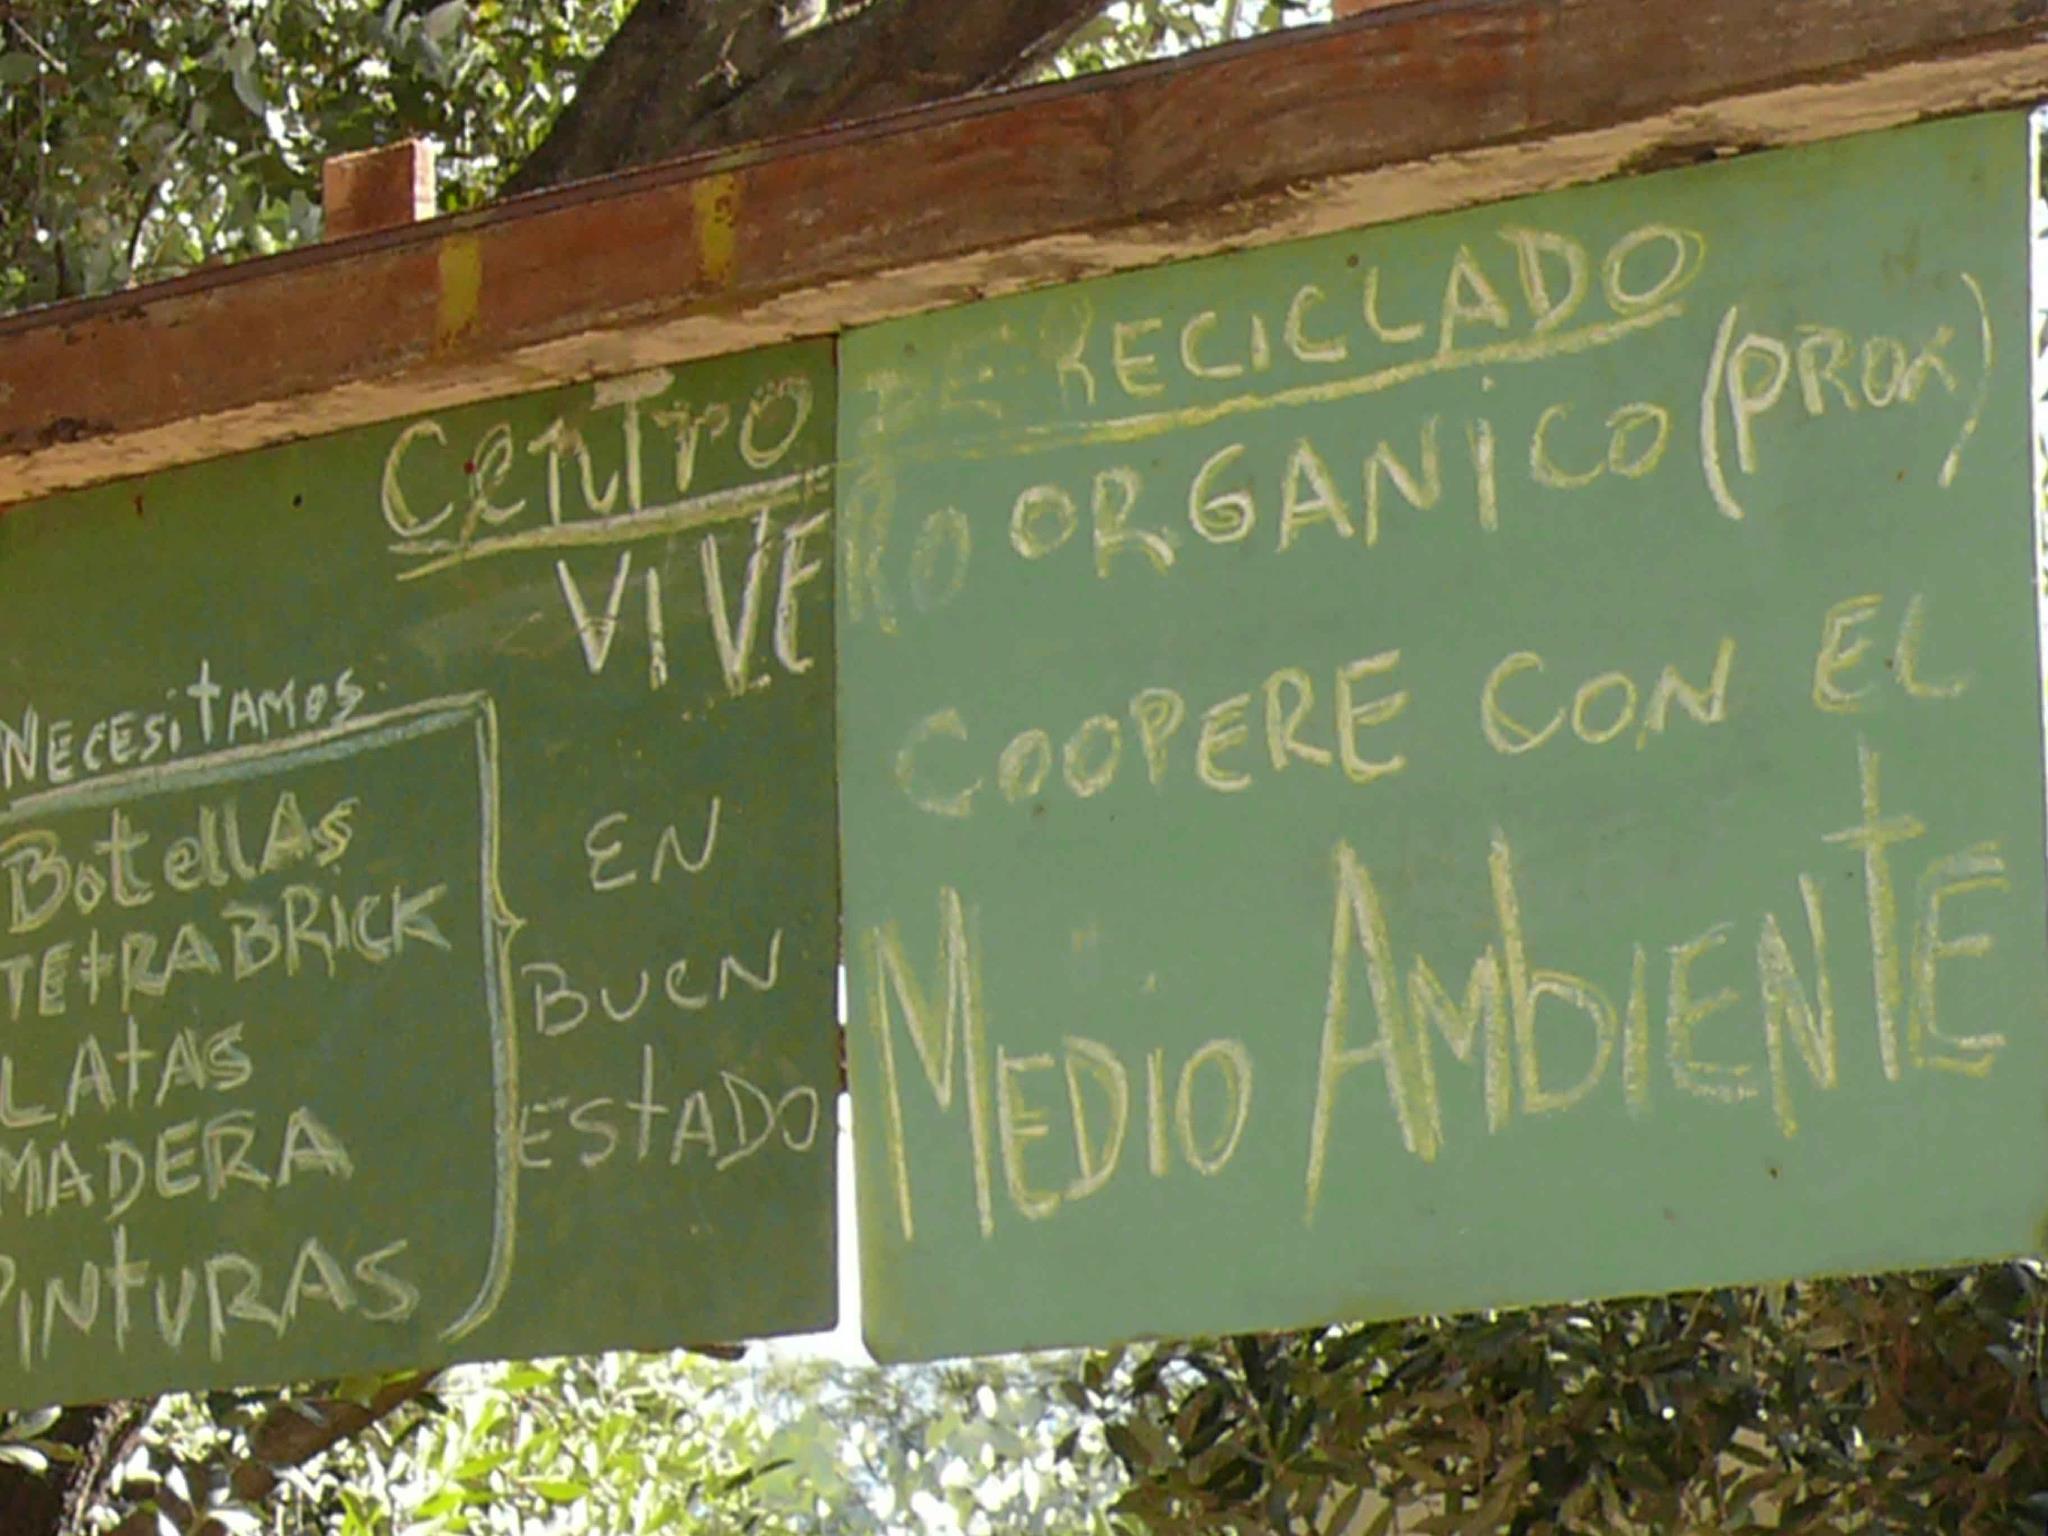 CENTRO DE RECICLADO
VIVERO ORGANICO (PROX)
NECESITAMOS
BotellAs
TEtRABRICK
LAtAS
MADERA
PINtURAS
EN
BUEN
EStADO
COOPERE CON EL
MEDIO AMbIENtE